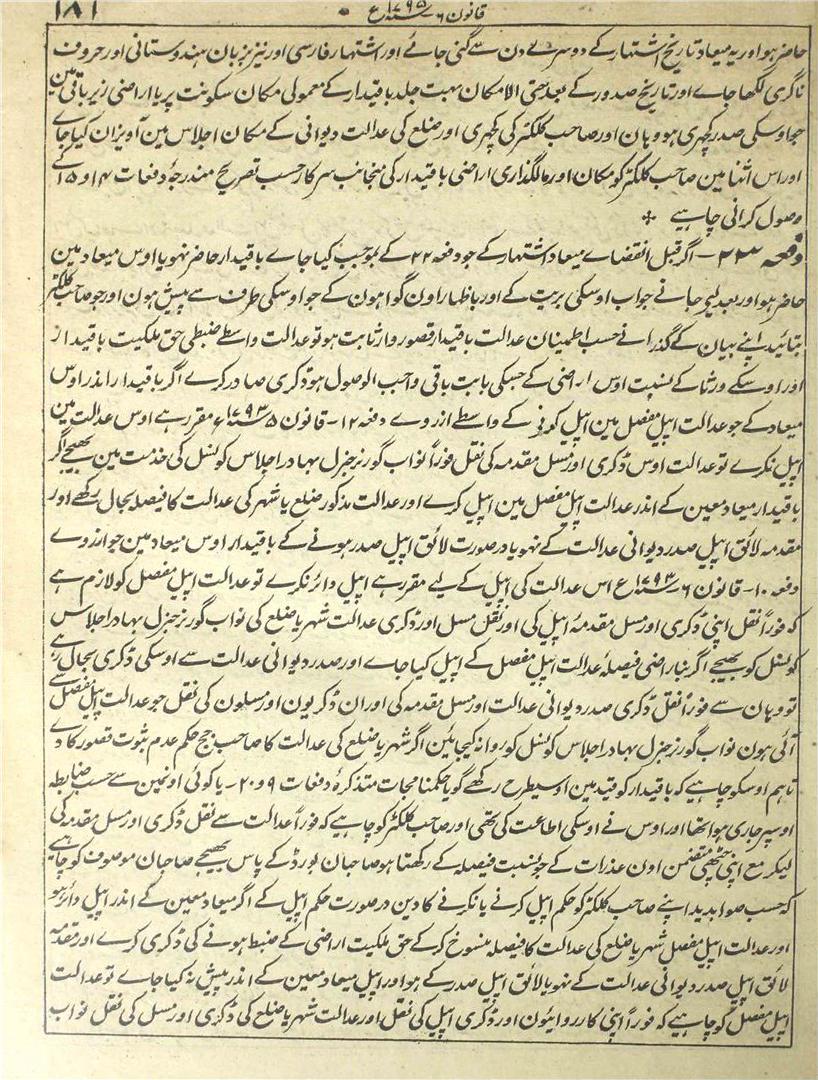 قانون ۶ سنہ ۱۷۹۵ع
۱۸۱
حاضر ہو اور یہ میعاد تاریخ اشتہار کے دوسرے دن سے گنی جائے اور اشتہار فارسی اور نیز بزبان ہندوستانی اور حروف
ناگری لکھا جاے اور تاریخ صدور کے بعد حتی الامکان بہت جلد باقیدار کے معمولی مکان سکونت پر یا اراضی زیر باقی مین
جہا اوسکی صدر کچہری ہو وہان اور صاحب کلکٹر کی کچہری اور ضلع کی عدالت دیوانی کے مکان اجلاس مین آویزان کیا جاے
اور اس اثنا مین صاحب کلکٹر کو مکان اور مالگذاری اراضی باقیدار کی منجانب سرکار حسب تصریح مندرجۂ دفعات ۱۴ و ۱۵ کے
وصول کرانی چاہیے ٭
دفعہ ۲۳ - اگر قبل انقضاے میعاد اشتہار کے جو دفعہ ۲۲ کے بموجب کیا جاے باقیدار حاضر نہو یا اوس میعاد مین
حاضر ہو اور بعد لیے جانے جواب اوسکی بریت کے اور باظہار اون گواہون کے جو اوسکی طرف سے پیش ہون اور جو صاحب کلکٹر
بتائید اپنے بیان کے گذرانے حسب اطمینان عدالت باقیدار قصوروار ثابت ہو تو عدالت واسطے ضبطی حق ملکیت باقیدار
اور اوسکے ورثا کے بنسبت اوس اراضی کے جسکی بابت باقی واجب الوصول ہو ڈکری صادر کرے اگر باقیدار اندر اوس
میعاد کے جو عدالت اپیل مفصل مین اپیل کرنے کے واسطے ازروے دفعہ ۱۲ - قانون ۵ سنہ ۱۷۹۳ع مقرر ہے اوس عدالت مین
اپیل نکرے تو عدالت اوس ڈکری اور مسل مقدمہ کی نقل فوراً نواب گورنر جنرل بہادر اجلاس کونسل کی خدمت مین بھیجے اگر
باقیدار میعاد معین کے اندر عدالت اپیل مفصل مین اپیل کرے اور عدالت مذکور ضلع یا شہر کی عدالت کا فیصلہ بحال رکھے اور
مقدمہ لائق اپیل صدر دیوانی عدالت کے نہو یا درصورت لائق اپیل صدر ہونے کے باقیدار اوس میعاد مین جو ازروے
دفعہ ۱۰ - قانون ۶ سنہ ۱۷۹۳ع اس عدالت کی اپیل کے لیے مقرر ہے اپیل دائر نکرے تو عدالت اپیل مفصل کو لازم ہے
کہ فوراً نقل اپنی ڈکری اور مسل مقدمۂ اپیل کی اور نقل مسل اور ڈکری عدالت شہر یا ضلع کی نواب گورنر جنرل بہادر اجلاس
کونسل کو بھیجے اگر بناراضی فیصلۂ عدالت اپیل مفصل کے اپیل کیا جاے اور صدر دیوانی عدالت سے اوسکی ڈکری بحال رہے
تو وہان سے فوراً نقل ڈکری صدر دیوانی عدالت اور مسل مقدمہ کی اور ان ڈکریون اور مسلون کی نقل جو عدالت اپیل مفصل سے
آئی ہون نواب گورنر جنرل بہادر اجلاس کونسل کو روانہ کیجائین اگر شہر یا ضلع کی عدالت کا صاحب جج حکم عدم ثبوت قصور کا دے
تاہم اوسکو چاہیے کہ باقیدار کو قید مین اوسیطرح رکھے گویا حکمنامجات متذکرۂ دفعات ۹ و ۲۰ - یا کوئی اونمین سے حسب ضابطہ
اوسپر جاری ہوا تھا اور اوس نے اوسکی اطاعت کی تھی اور صاحب کلکٹر کو چاہیے کہ فوراً عدالت سے نقل ڈکری اور مسل مقدمہ کی
لیکر مع اپنی چٹھی متضمن اون عذرات کے جو بنسبت فیصلہ کے رکھتا ہو صاحبان بورڈ کے پاس بھیجے صاحبان موصوف کو چاہیے
کہ حسب صوابدید اپنے صاحب کلکٹر کو حکم اپیل کرنے یا نکرنے کا دین درصورت حکم اپیل کے اگر میعاد معین کے اندر اپیل دائر ہو
اور عدالت اپیل مفصل شہر یا ضلع کی عدالت کا فیصلہ منسوخ کرکے حق ملکیت اراضی کے ضبط ہونے کی ڈکری کرے اور مقدمہ
لائق اپیل صدر دیوانی عدالت کے نہو یا لائق اپیل صدر کے ہو اور اپیل میعاد معین کے اندر پیش نہ کیا جاے تو عدالت
اپیل مفصل کو چاہیے کہ فوراً اپنی کارروائیون اور ڈکری اپیل کی نقل اور عدالت شہر یا ضلع کی ڈکری اور مسل کی نقل نواب